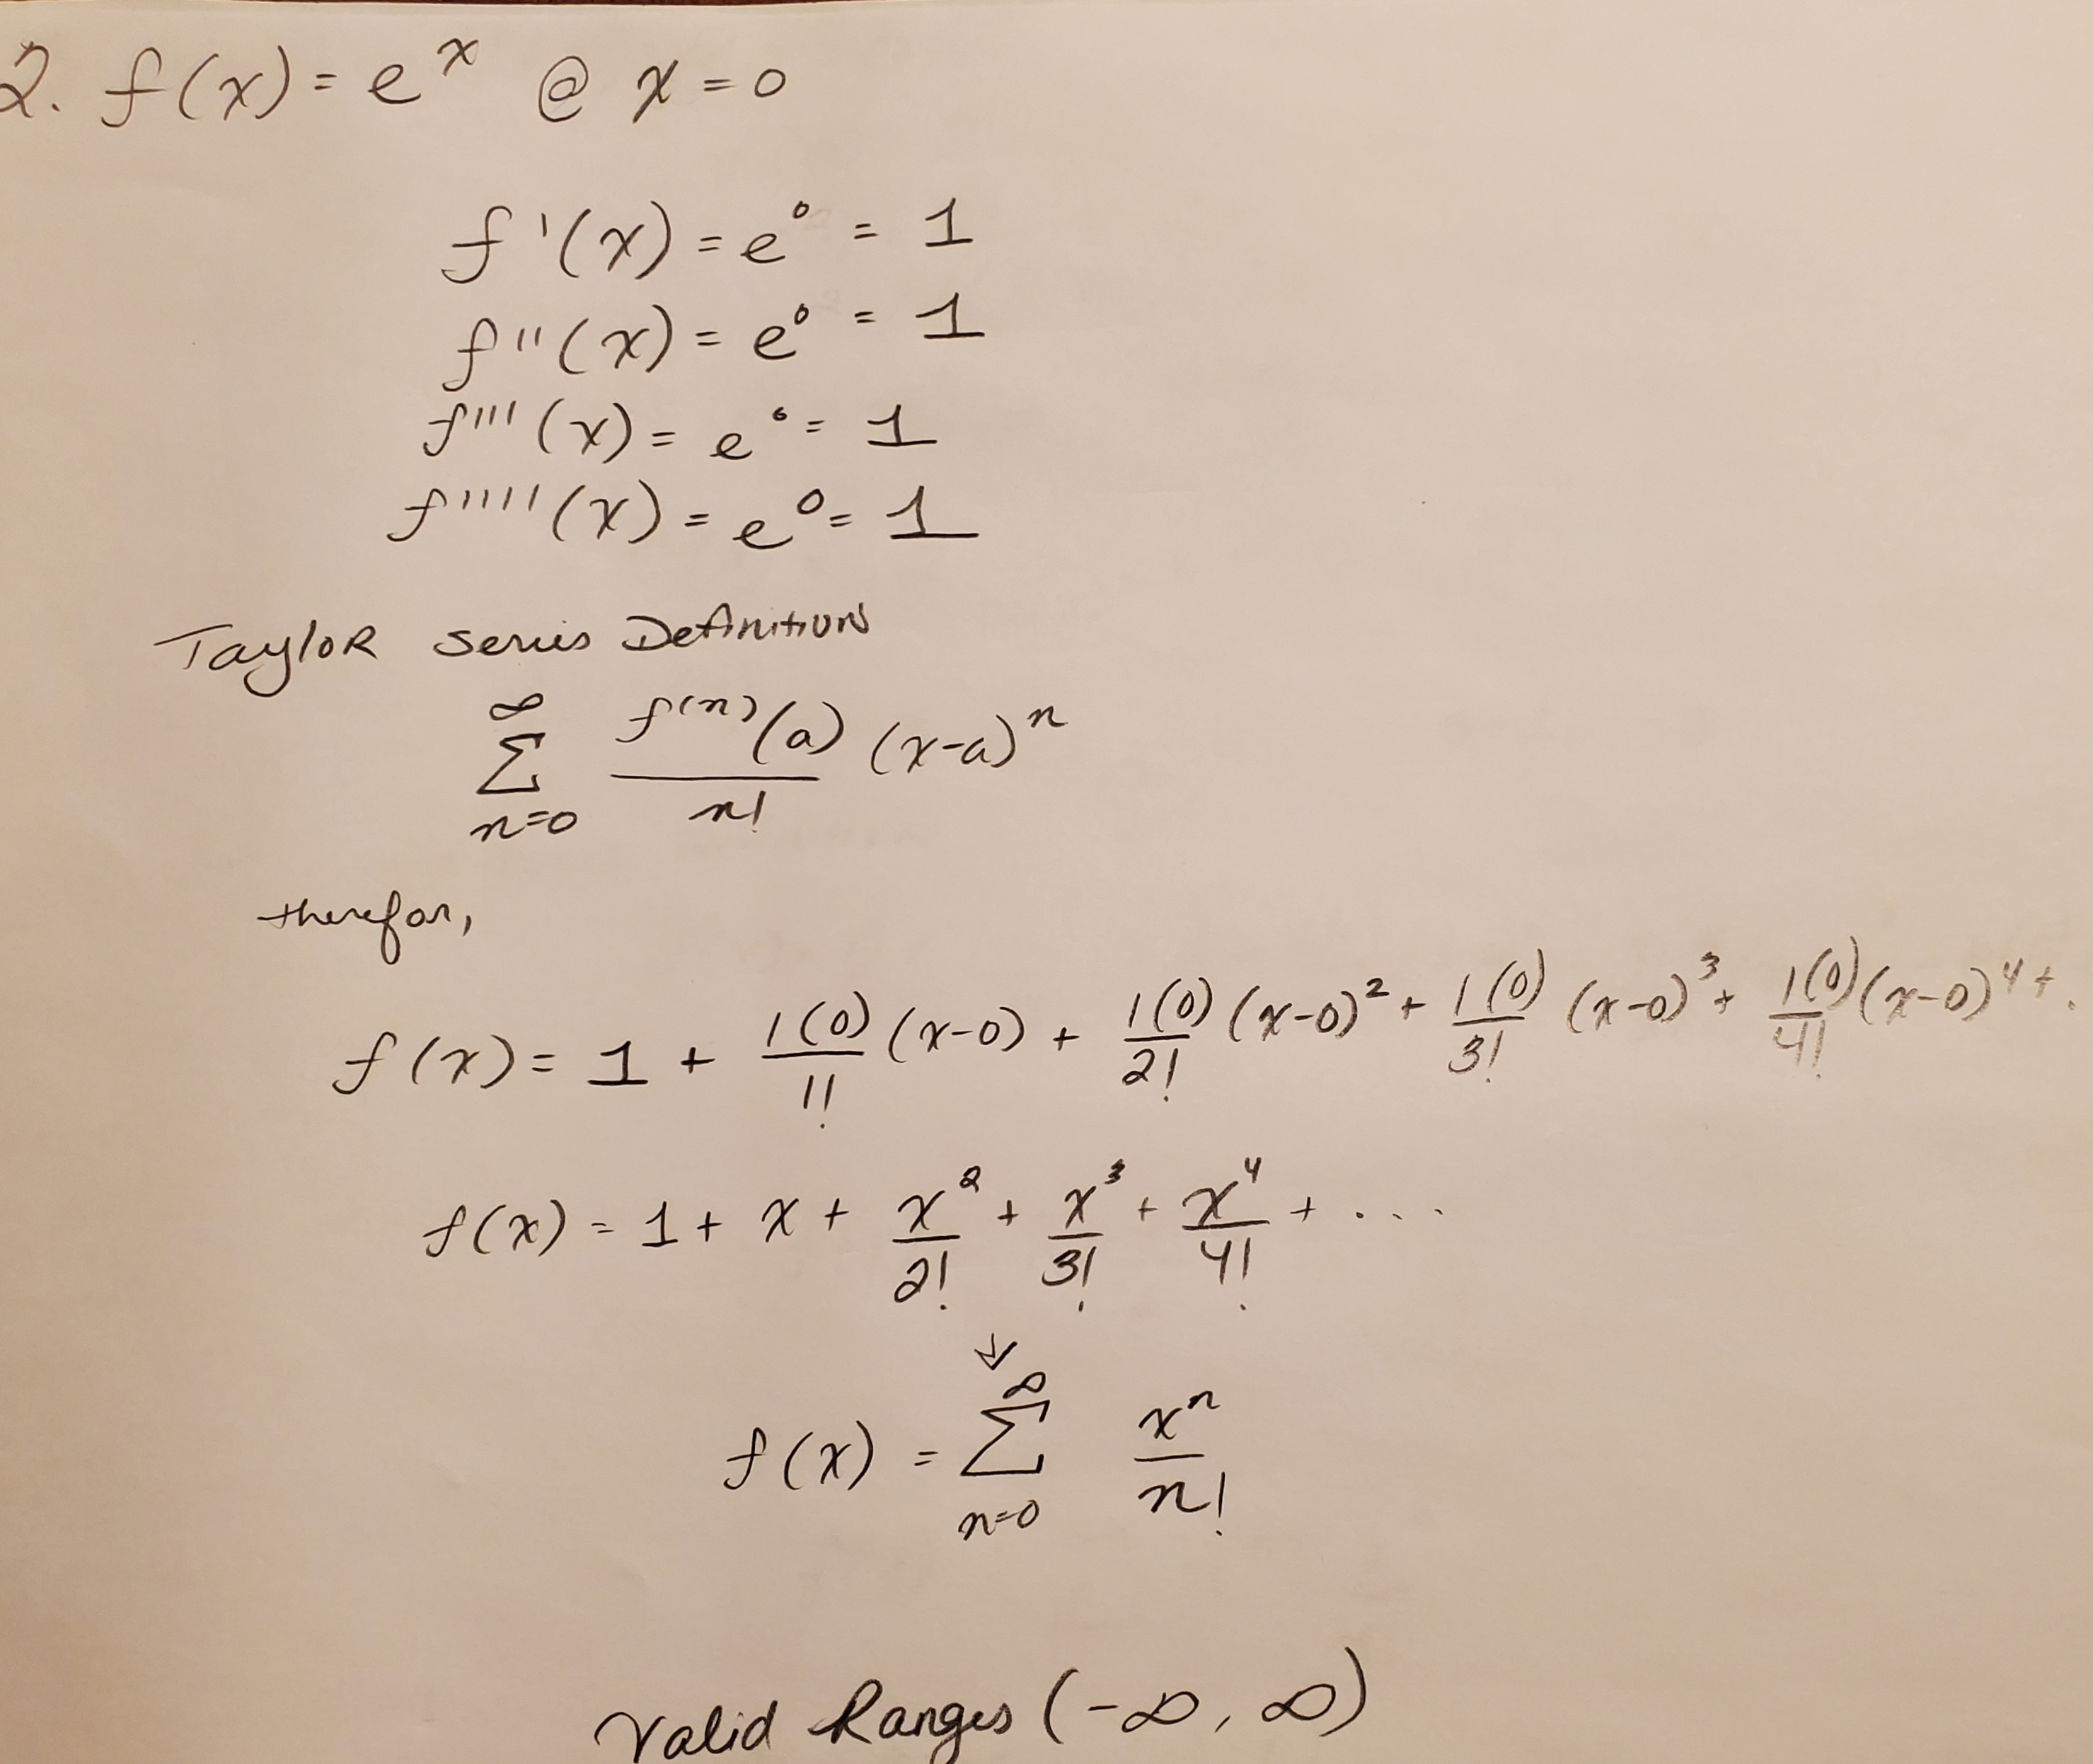 2. f(x) = e^x @ x = 0
f'(x) = e^0 = 1
f''(x) = e^0 = 1
f'''(x) = e^0 = 1
f''''(x) = e^0 = 1
Taylor Series Definition
∞
Σ f^(n)(a)/n! (x-a)^n
n=0
therefor,
f(x) = 1 + 1(0)/1! (x-0) + 1(0)/2! (x-0)^2 + 1(0)/3! (x-0)^3 + 1(0)/4! (x-0)^4 + .
f(x) = 1 + x + x^2/2! + x^3/3! + x^4/4! + ....
↓
∞
f(x) = Σ x^n/n!
n=0
Valid Ranges (-∞, ∞)